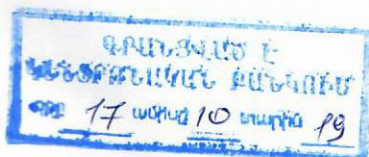 ԳՐԱՆՑՎԱԾ Է
ԿԵՆՏՐՈՆԱԿԱՆ ԲԱՆԿՈՒՄ
օր 17 ամիս 10 տարի 19